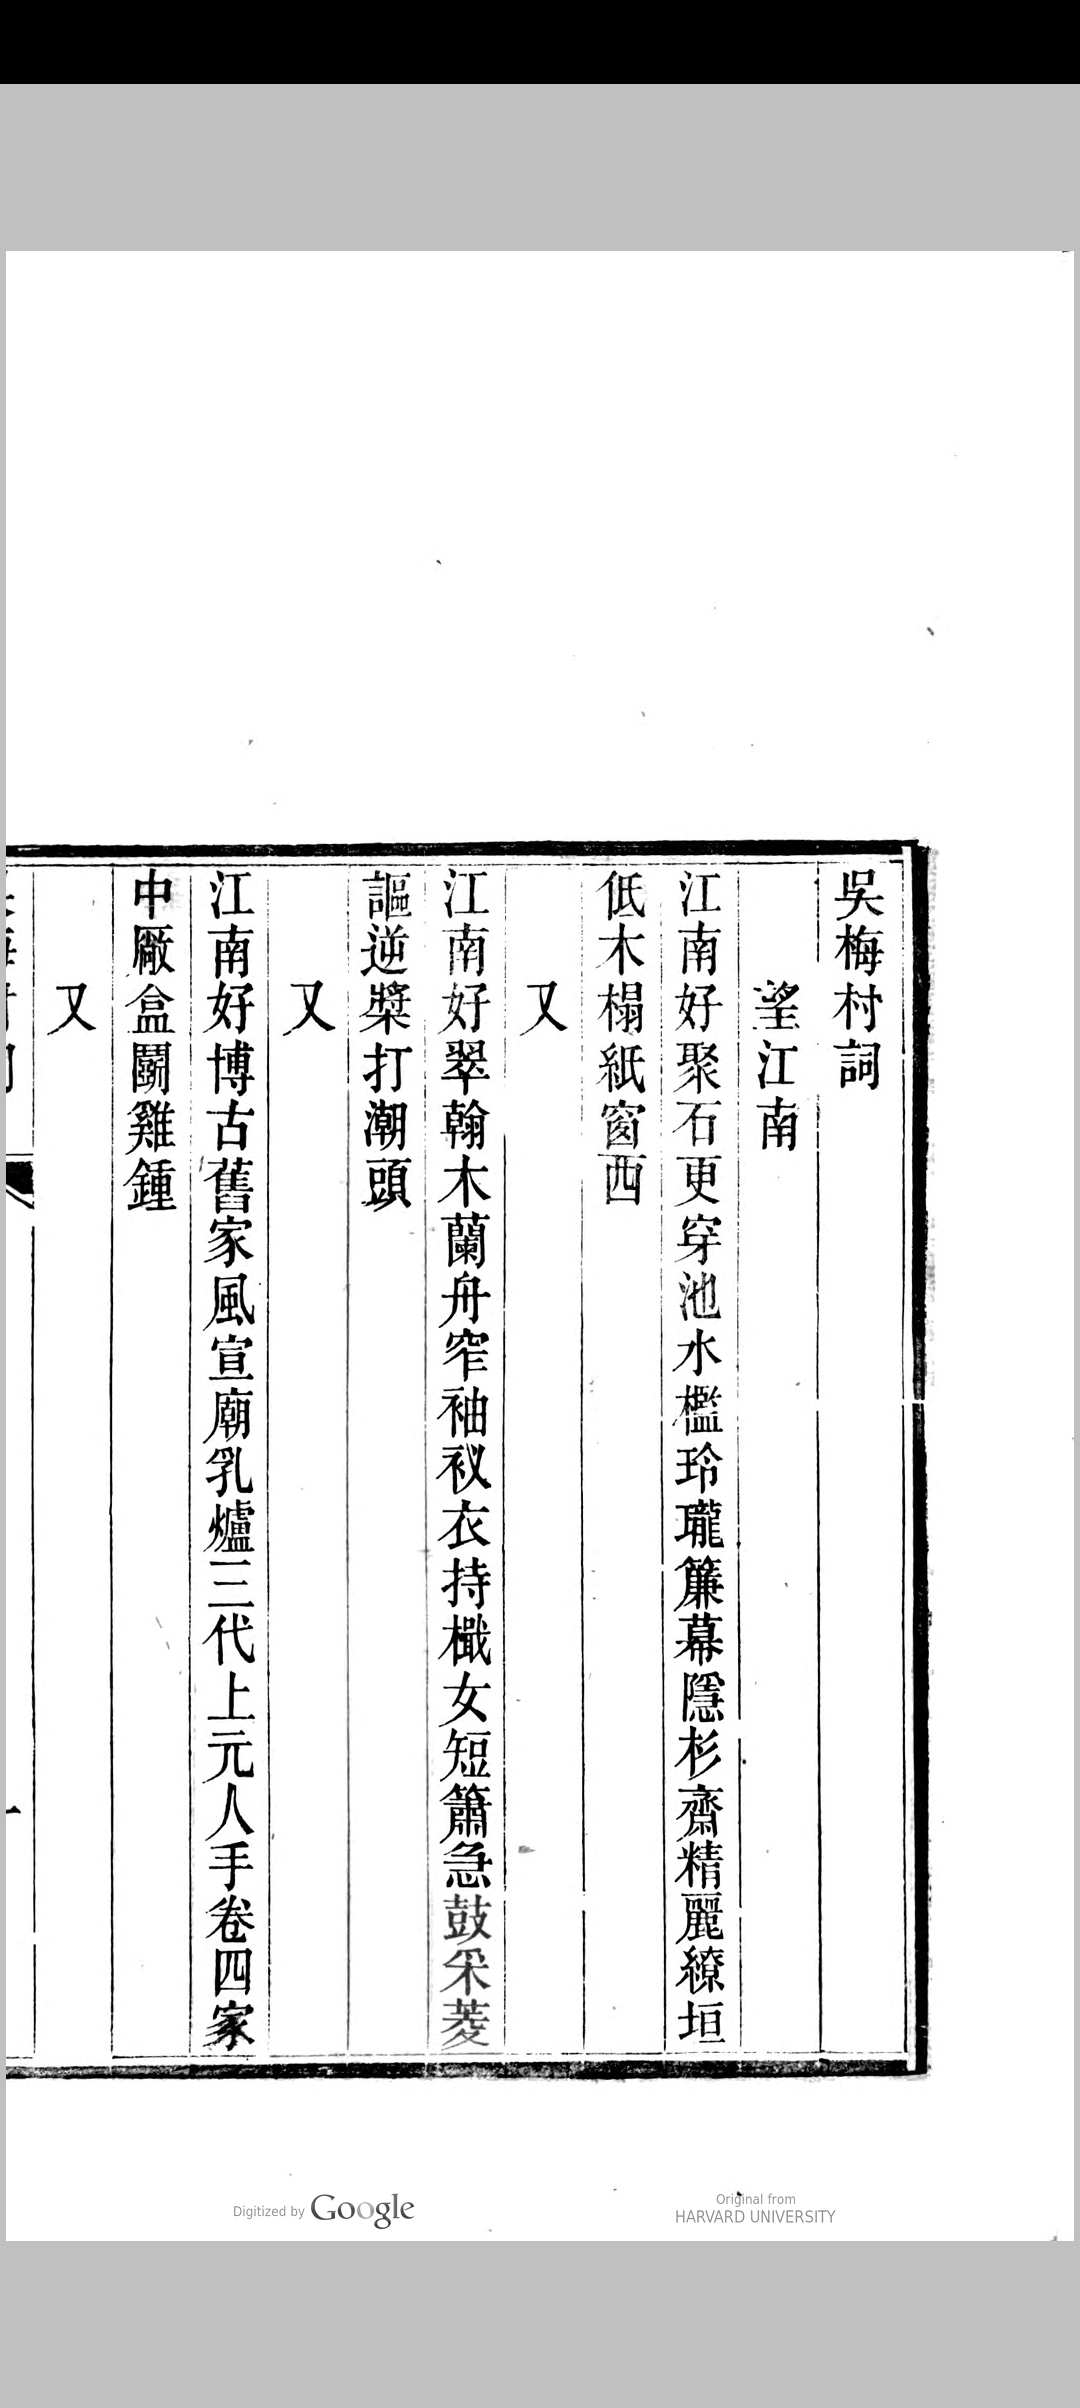 吳梅村詞
望江南
江南好聚石更穿池水檻玲瓏簾幕隱杉齋精麗繚垣
低木榻紙窗西
又
江南好翠翰木蘭舟窄袖衩衣持檝女短簫急鼓采菱
謳逆槳打潮頭
又
江南好博古舊家風宣廟乳爐三代上元人手卷四家
中廠盒鬭雞鍾
又
Digitized by Google
Original from
HARVARD UNIVERSITY